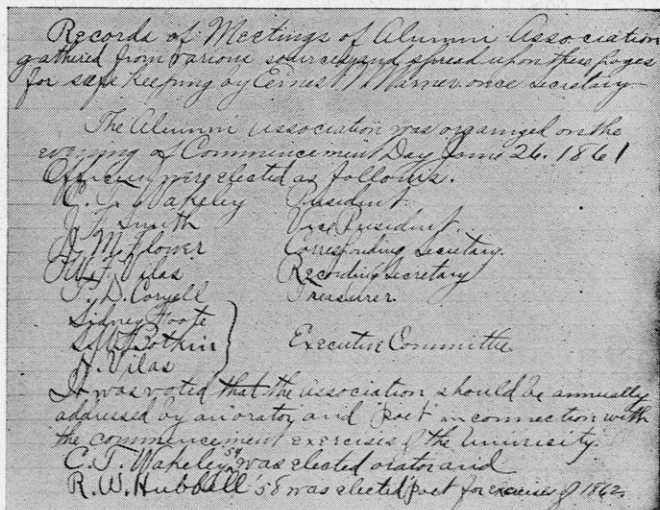 Records of Meetings of Alumni Association
gathered from various sources and spread upon these pages
for safe keeping by Ernest N. Warner once secretary
The Alumni Association was organized on the
evening of Commencement Day June 26. 1861
Officers were elected as follows.
C. T. Wakeley President
J. L. Smith Vice President.
J. M. Flower Corresponding Secretary.
W. F. Vilas Recording Secretary
T. D. Coryell Treasurer.
Sidney Foote
S. W. Botkin Executive Committee
H. Vilas
It was voted that the association should be annually
addressed by an orator and poet in connection with
the commencement exercises of the University.
C. T. Wakeley '54 was elected orator and
R. W. Hubbell '58 was elected poet for exercises of 1862.